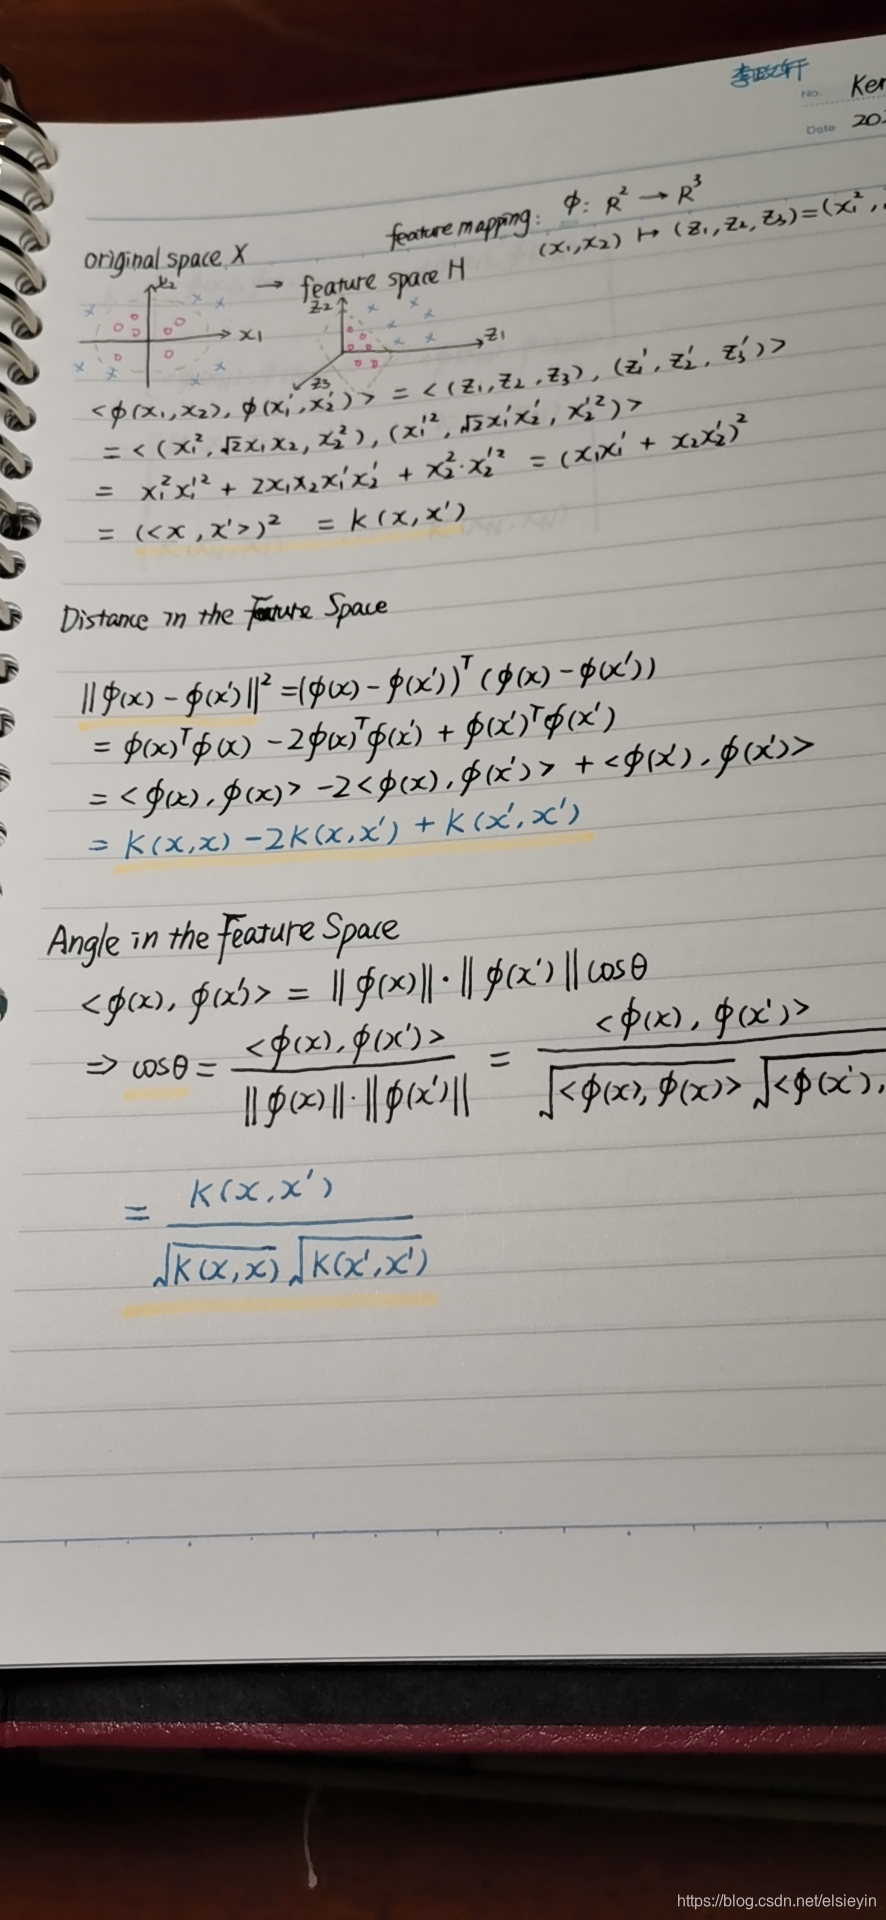 李政轩
No. Ker
Date 202
feature mapping: ϕ: R² → R³
(x₁,x₂) ↦ (z₁,z₂,z₃)=(x₁²,
original space X → feature space H
x₂
x₁
z₂
z₁
z₃
<ϕ(x₁,x₂), ϕ(x₁',x₂')> = <(z₁,z₂,z₃), (z₁',z₂',z₃')>
= <(x₁², √2x₁x₂, x₂²), (x₁'², √2x₁'x₂', x₂'²)>
= x₁²x₁'² + 2x₁x₂x₁'x₂' + x₂²·x₂'² = (x₁x₁' + x₂x₂')²
= (<x,x'>)² = K(x,x')
Distance in the Feature Space
||ϕ(x) - ϕ(x')||² = (ϕ(x) - ϕ(x'))ᵀ(ϕ(x) - ϕ(x'))
= ϕ(x)ᵀϕ(x) - 2ϕ(x)ᵀϕ(x') + ϕ(x')ᵀϕ(x')
= <ϕ(x),ϕ(x)> - 2<ϕ(x),ϕ(x')> + <ϕ(x'),ϕ(x')>
= K(x,x) - 2K(x,x') + K(x',x')
Angle in the Feature Space
<ϕ(x), ϕ(x')> = ||ϕ(x)||·||ϕ(x')|| cosθ
⇒ cosθ = <ϕ(x),ϕ(x')> / ||ϕ(x)||·||ϕ(x')|| = <ϕ(x),ϕ(x')> / √<ϕ(x),ϕ(x)> √<ϕ(x'),
= K(x,x') / √K(x,x) √K(x',x')
https://blog.csdn.net/elsieyin